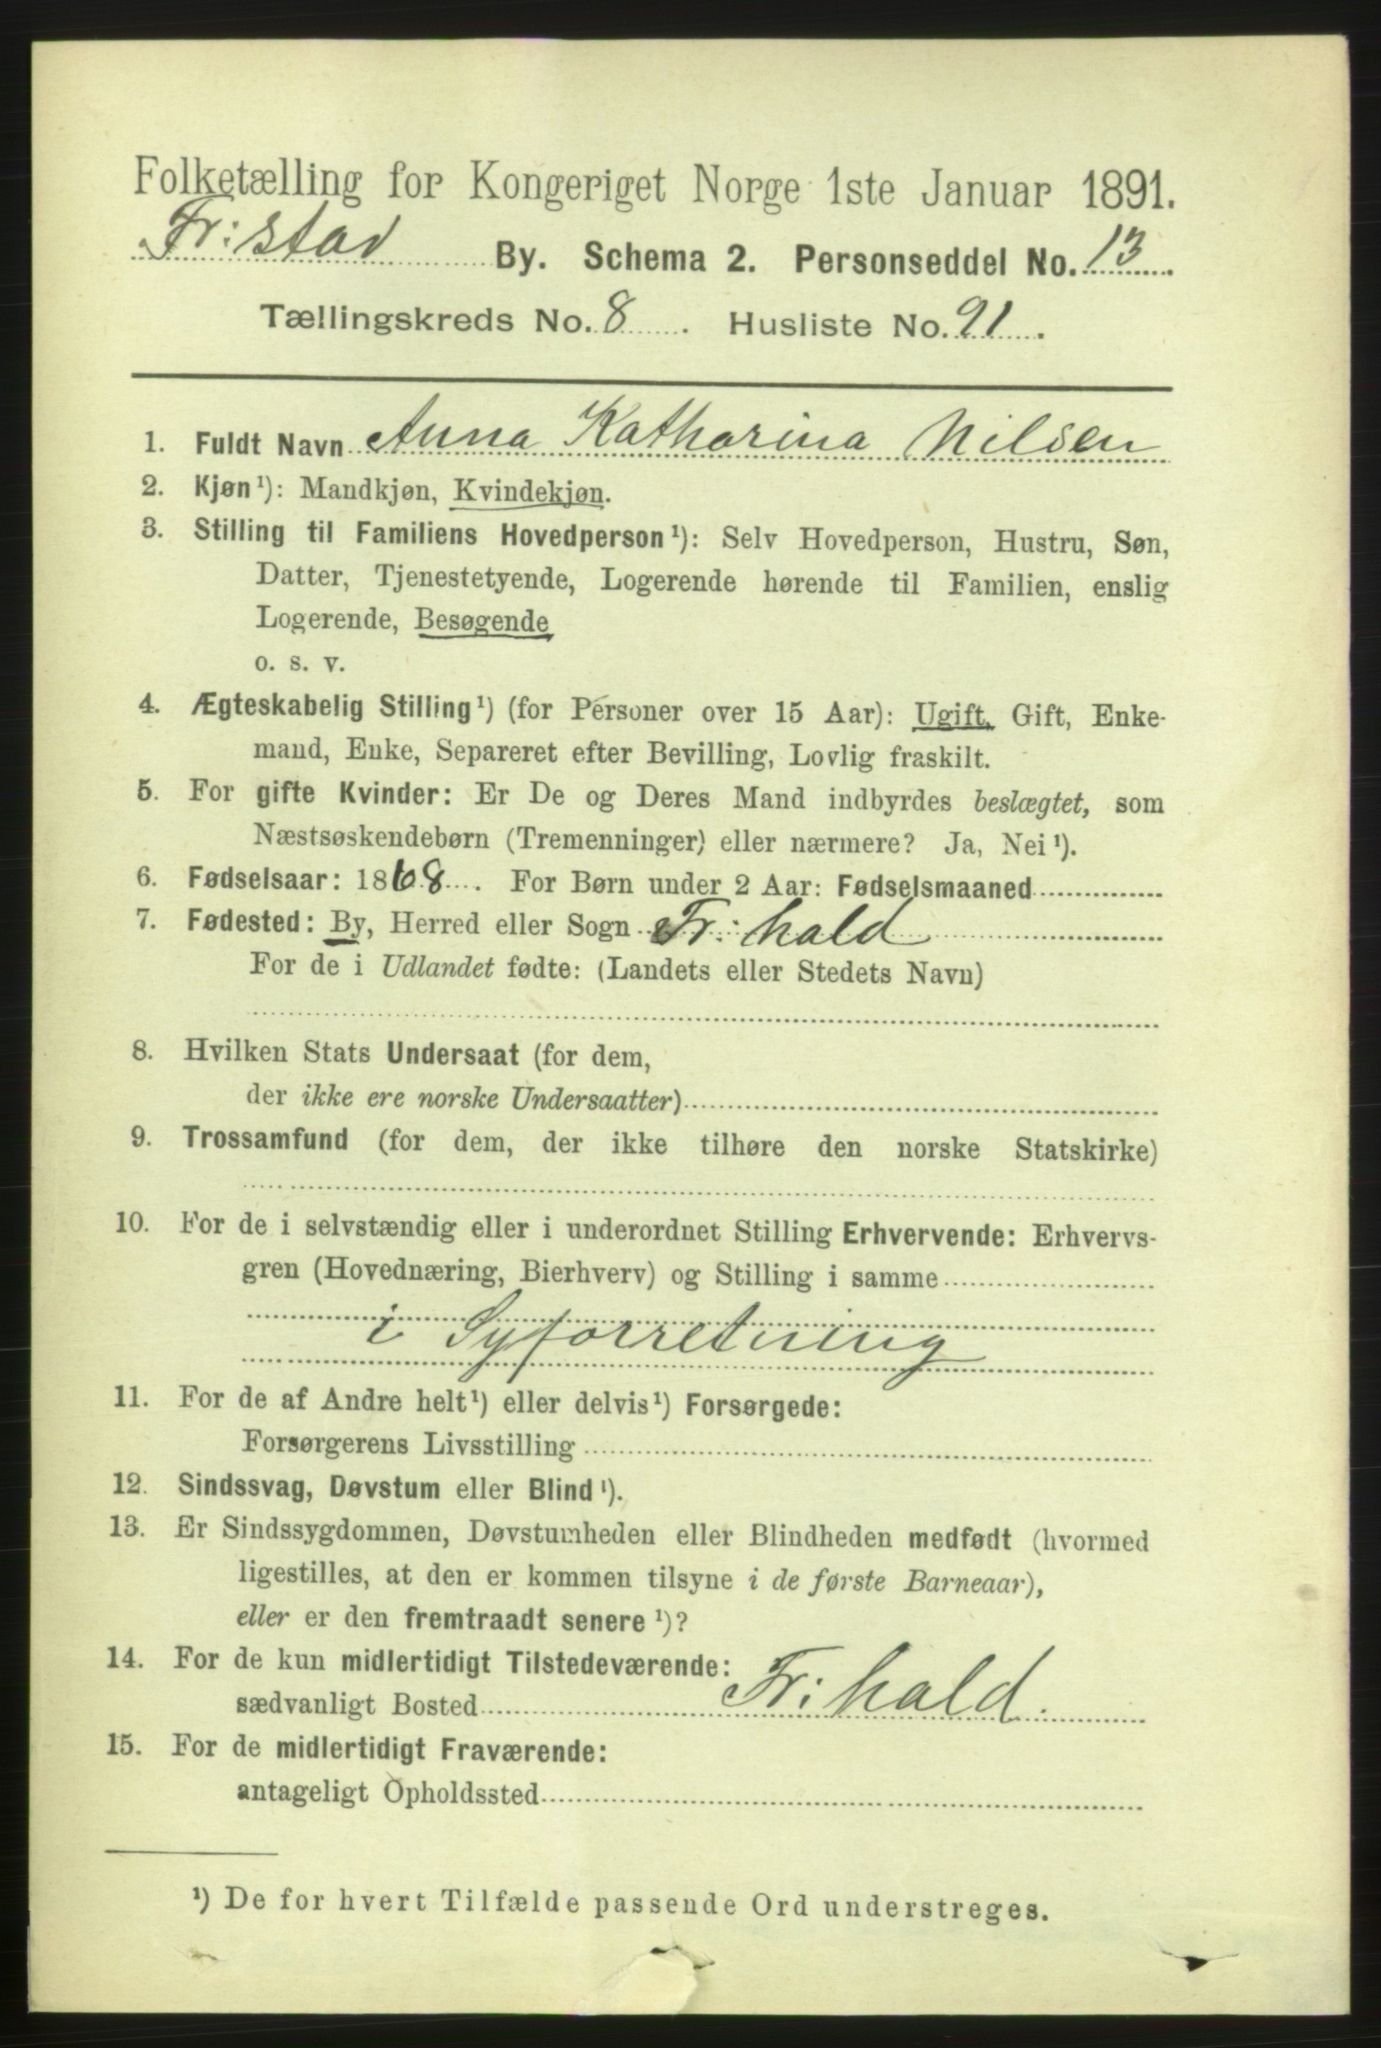 Folketælling for Kongeriget Norge 1ste Januar 1891.
Fr:stad By. Schema 2. Personseddel No. 13.
Tællingskreds No. 8. Husliste No. 91.
1. Fuldt Navn Anna Katharina Nilsen
2. Kjøn¹): Mandkjøn, Kvindekjøn.
3. Stilling til Familiens Hovedperson¹): Selv Hovedperson, Hustru, Søn,
Datter, Tjenestetyende, Logerende hørende til Familien, enslig
Logerende, Besøgende
o. s. v.
4. Ægteskabelig Stilling¹) (for Personer over 15 Aar): Ugift, Gift, Enke-
mand, Enke, Separeret efter Bevilling, Lovlig fraskilt.
5. For gifte Kvinder: Er De og Deres Mand indbyrdes beslægtet, som
Næstsøskendebørn (Tremenninger) eller nærmere? Ja, Nei¹).
6. Fødselsaar: 1868. For Børn under 2 Aar: Fødselsmaaned
7. Fødested: By, Herred eller Sogn Fr:hald
For de i Udlandet fødte: (Landets eller Stedets Navn)
8. Hvilken Stats Undersaat (for dem,
der ikke ere norske Undersaatter)
9. Trossamfund (for dem, der ikke tilhøre den norske Statskirke)
10. For de i selvstændig eller i underordnet Stilling Erhvervende: Erhvervs-
gren (Hovednæring, Bierhverv) og Stilling i samme
i Syforretning
11. For de af Andre helt¹) eller delvis¹) Forsørgede:
Forsørgerens Livsstilling
12. Sindssvag, Døvstum eller Blind¹).
13. Er Sindssygdommen, Døvstumheden eller Blindheden medfødt (hvormed
ligestilles, at den er kommen tilsyne i de første Barneaar),
eller er den fremtraadt senere¹)?
14. For de kun midlertidigt Tilstedeværende:
sædvanligt Bosted Fr:hald.
15. For de midlertidigt Fraværende:
antageligt Opholdssted
¹) De for hvert Tilfælde passende Ord understreges.